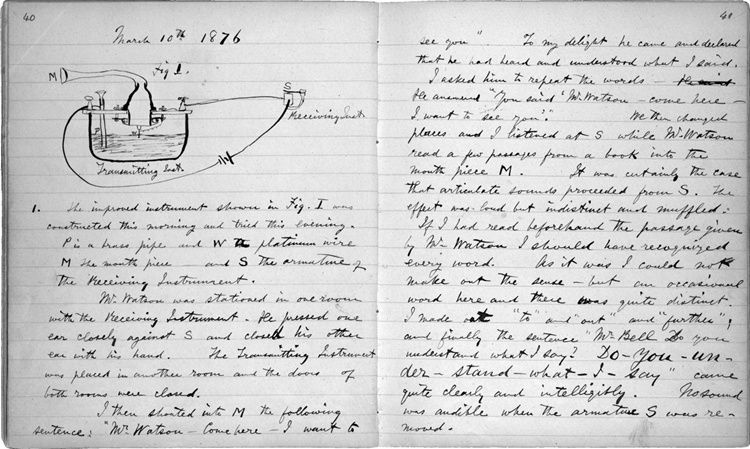 40
March 10th 1876
Fig 1.
M
S
Receiving Inst.
Transmitting Inst.
1. The improved instrument shown in Fig. I was
constructed this morning and tried this evening.
P is a brass pipe and W the platinum wire
M the mouth piece and S the armature of
the Receiving Instrument.
Mr. Watson was stationed in one room
with the Receiving Instrument. He pressed one
ear closely against S and closed his other
ear with his hand. The Transmitting Instrument
was placed in another room and the doors of
both rooms were closed.
I then shouted into M the following
sentence: "Mr. Watson - Come here - I want to
41
see you". To my delight he came and declared
that he had heard and understood what I said.
I asked him to repeat the words -
He answered "You said 'Mr. Watson - come here -
I want to see you'." We then changed
places and I listened at S while Mr. Watson
read a few passages from a book into the
mouth piece M. It was certainly the case
that articulate sounds proceeded from S. The
effect was loud but indistinct and muffled.
If I had read beforehand the passage given
by Mr. Watson I should have recognized
every word. As it was I could not
make out the sense - but an occasional
word here and there was quite distinct.
I made out "to" and "out" and "further";
and finally the sentence "Mr. Bell Do you
understand what I say? Do-you-un-
der-stand-what-I-say" came
quite clearly and intelligibly. No sound
was audible when the armature S was re-
moved.